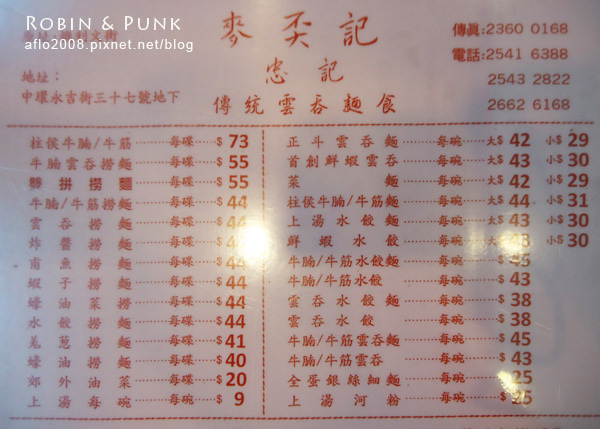 ROBIN & PUNK
aflo2008.pixnet.net/blog
麥奀記
忠記
傳統雲吞麵食
傳真:2360 0168
電話:2541 6388
2543 2822
2662 6168
地址:
中環永吉街三十七號地下
柱侯牛腩/牛筋……每碟……$73
牛腩雲吞撈麵……每碟……$55
雙拼撈麵……每碟……$55
牛腩/牛筋撈麵……每碟……$44
雲吞撈麵……每碟……$44
炸醬撈麵……每碟……
南魚撈麵……每碟……$44
蝦子撈麵……每碟……$44
蠔油菜撈……每碟……$44
水餃撈麵……每碟……$44
羗葱撈麵……每碟……$41
蠔油撈麵……每碟……$40
郊外油菜……每碟……$20
上湯每碗……每碗……$9
正斗雲吞麵……每碗……大$42 小$29
首創鮮蝦雲吞……每碗……大$43 小$30
菜麵……每碗……大$42 小$29
柱侯牛腩/牛筋麵……每碗……大$44 小$31
上湯水餃麵……每碗……大$43 小$30
鮮蝦水餃……每碗……大$43 小$30
牛腩/牛筋水餃麵……每碗……$45
牛腩/牛筋水餃……每碗……$43
雲吞水餃麵……每碗……$38
雲吞水餃……每碗……$38
牛腩/牛筋雲吞麵……每碗……$45
牛腩/牛筋雲吞……每碗……$43
全蛋銀絲細麵……每碗……$25
上湯河粉……每碗……$25